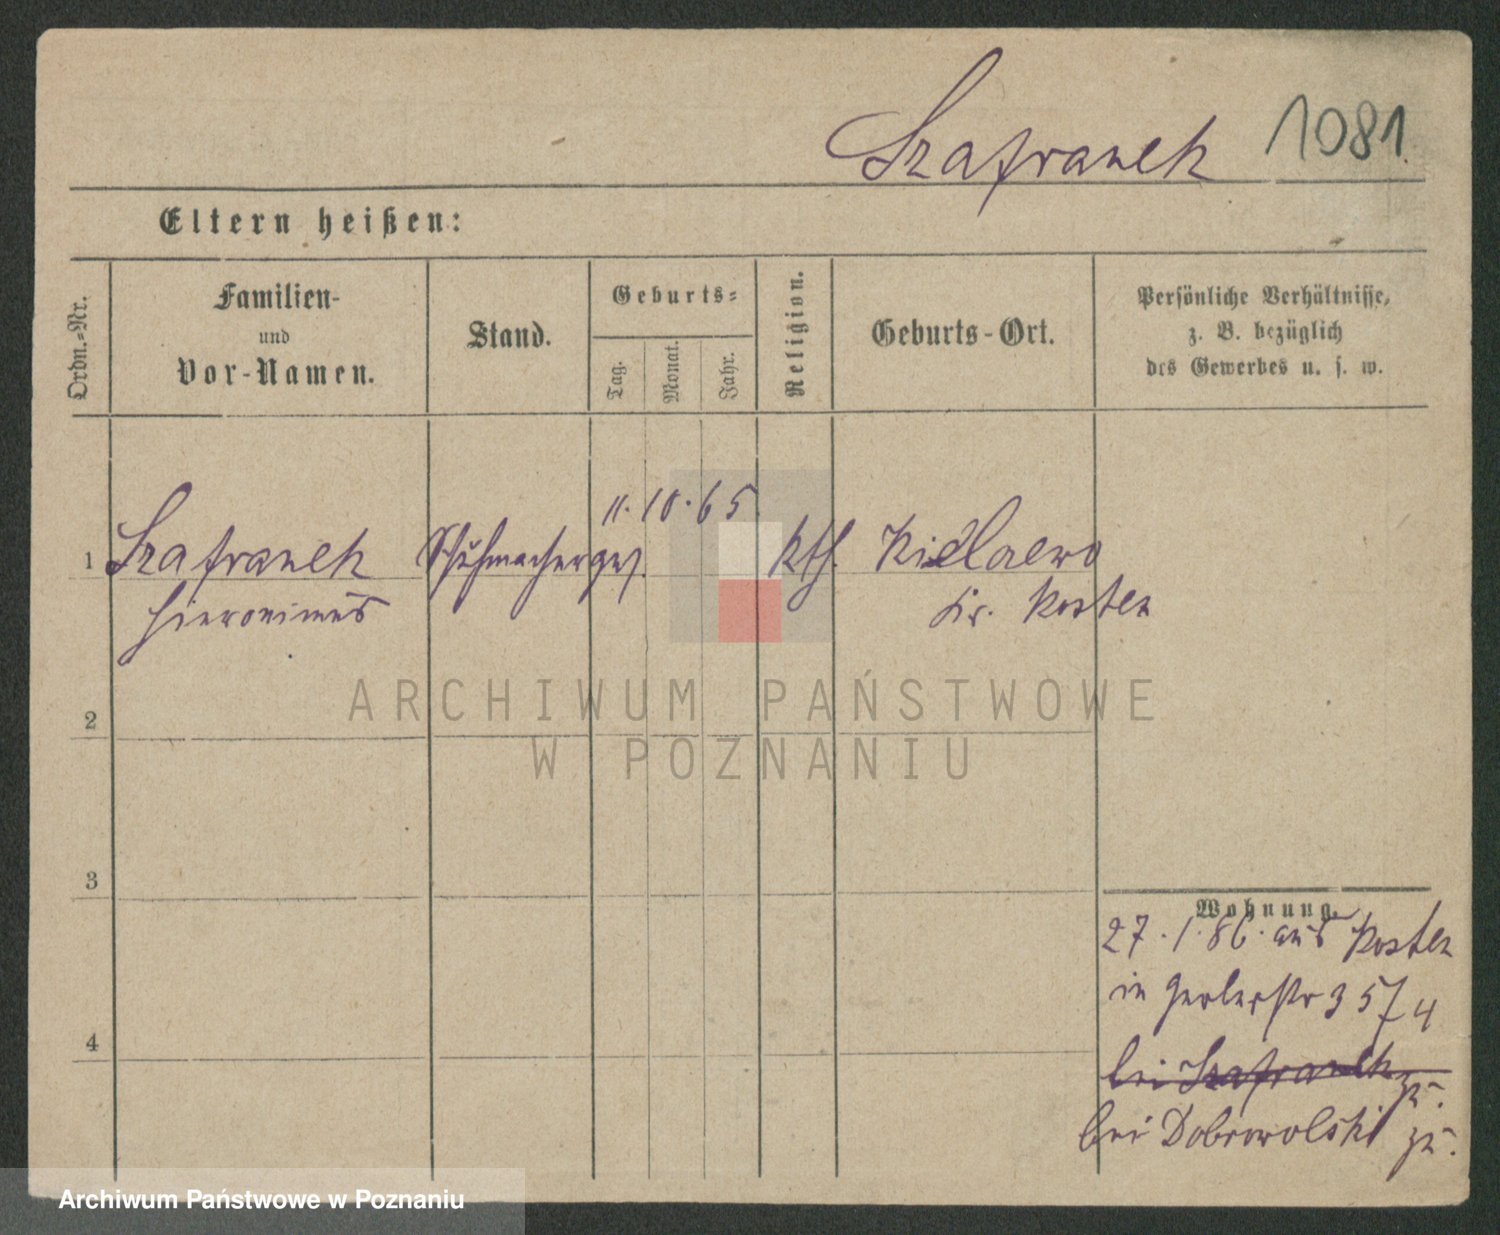 Szafranek 1081
Eltern heißen:
Ordn.-Nr.
Familien-
und
Vor-Namen.
Stand.
Geburts-
Tag.
Monat.
Jahr.
Religion.
Geburts-Ort.
Persönliche Verhältnisse,
z. B. bezüglich
des Gewerbes u. s. w.
11. 10. 65.
1 Szafranek Schuhmacherges. kth.
Hieronimus Kr. Kosten
2
3
4
Wohnung.
27. 1. 86. aus Kosten
in Gerberstr 3
bei Szafranek zu.
bei Dobrowolski zu.
ARCHIWUM PAŃSTWOWE
W POZNANIU
Archiwum Państwowe w Poznaniu